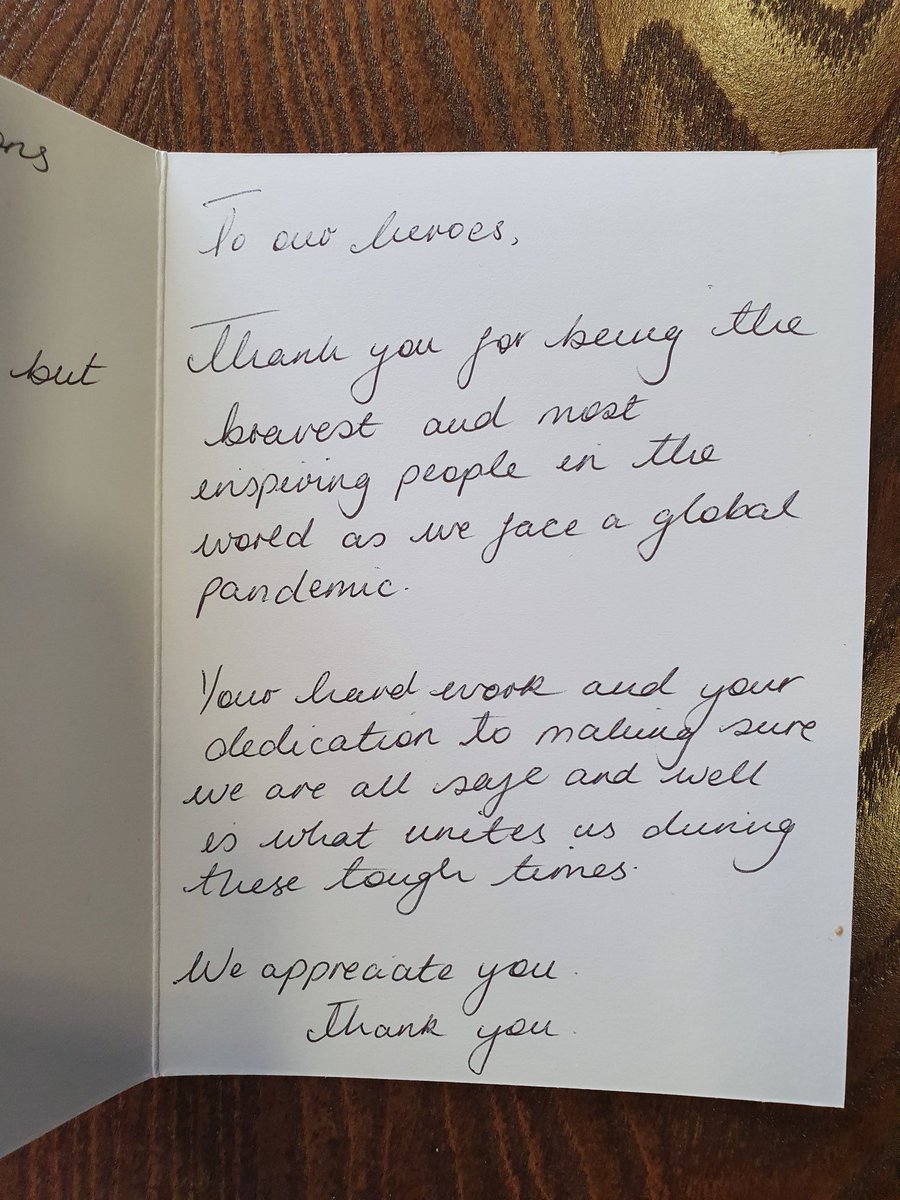 but
To our heroes,
Thank you for being the
bravest and most
inspiring people in the
world as we face a global
pandemic.
Your hard work and your
dedication to making sure
we are all safe and well
is what unites us during
these tough times.
We appreciate you.
Thank you.